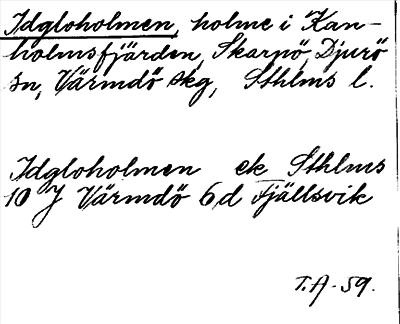 Idgloholmen, holme i Kan-
holmsfjärden, Skarpö, Djurö
sn, Värmdö skg, Sthlms l.
Idgloholmen ek Sthlms
10 J Värmdö 6,d Fjällsvik
T.A-59.